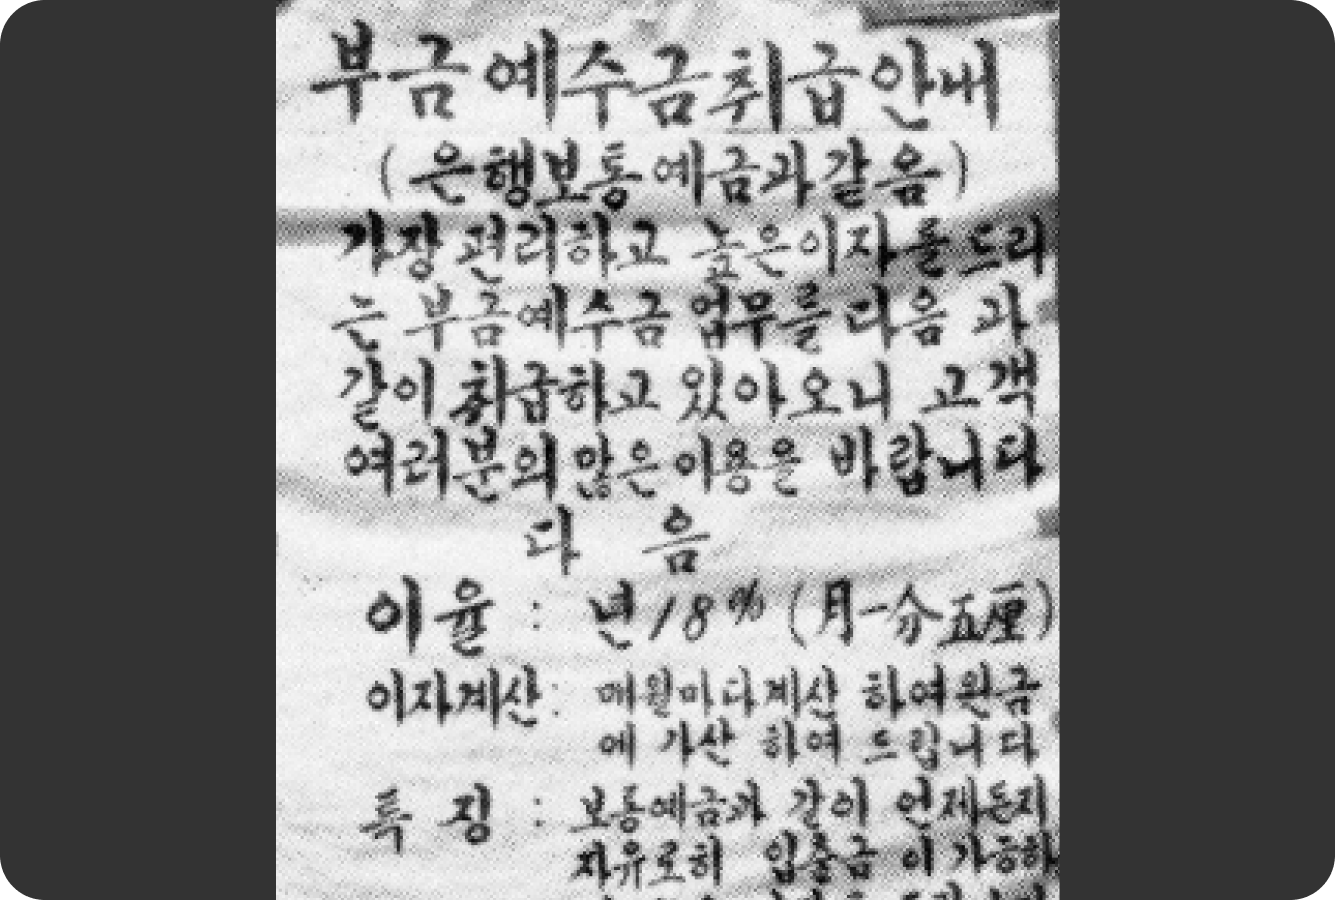 부금예수금취급안내
(은행보통예금과같음)
가장 편리하고 높은이자를드리
는 부금예수금 업무를 다음 과
같이 취급하고 있아오니 고객
여러분의 않은 이용을 바랍니다
다 음
이 율 : 년 18% (月一分五厘)
이자계산: 매월마다계산 하여원금
에 가산 하여 드립니다
특 징 : 보통예금과 같이 언제든지
자유로히 입출금 이 가능하